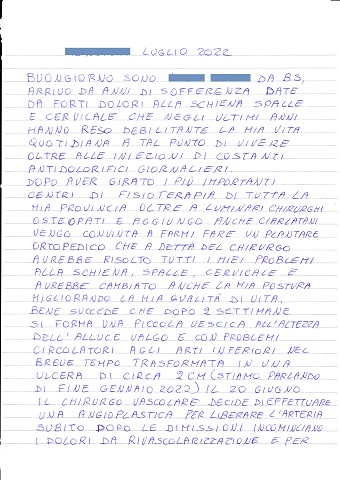 LUGLIO 2022
BUONGIORNO SONO DA BS,
ARRIVO DA ANNI DI SOFFERENZA DATE
DA FORTI DOLORI ALLA SCHIENA SPALLE
E CERVICALE CHE NEGLI ULTIMI ANNI
HANNO RESO DEBILITANTE LA MIA VITA
QUOTIDIANA A TAL PUNTO DI VIVERE
OLTRE ALLE INIEZIONI DI COSTANTI
ANTIDOLORIFICI GIORNALIERI.
DOPO AVER GIRATO I PIÙ IMPORTANTI
CENTRI DI FISIOTERAPIA DI TUTTA LA
MIA PROVINCIA OLTRE A LUMINARI CHIRURGHI
OSTEOPATI E AGGIUNGO ANCHE CIARLATANI
VENGO CONVINTA A FARMI FARE UN PLANTARE
ORTOPEDICO CHE A DETTA DEL CHIRURGO
AVREBBE RISOLTO TUTTI I MIEI PROBLEMI
ALLA SCHIENA, SPALLE, CERVICALE E
AUREBBE CAMBIATO ANCHE LA MIA POSTURA
MIGLIORANDO LA MIA QUALITÀ DI VITA.
BENE SUCCEDE CHE DOPO 2 SETTIMANE
SI FORMA UNA PICCOLA VESCICA ALL'ALTEZZA
DELL'ALLUCE VALGO E CON PROBLEMI
CIRCOLATORI AGLI ARTI INFERIORI NEL
BREVE TEMPO TRASFORMATA IN UNA
ULCERA DI CIRCA 2 CM (STIAMO PARLANDO
DI FINE GENNAIO 2022) IL 20 GIUGNO
IL CHIRURGO VASCOLARE DECIDE DI EFFETTUARE
UNA ANGIOPLASTICA PER LIBERARE L'ARTERIA
SUBITO DOPO LE DIMISSIONI INCOMINCIANO
I DOLORI DA RIVASCOLARIZZAZIONE E PER